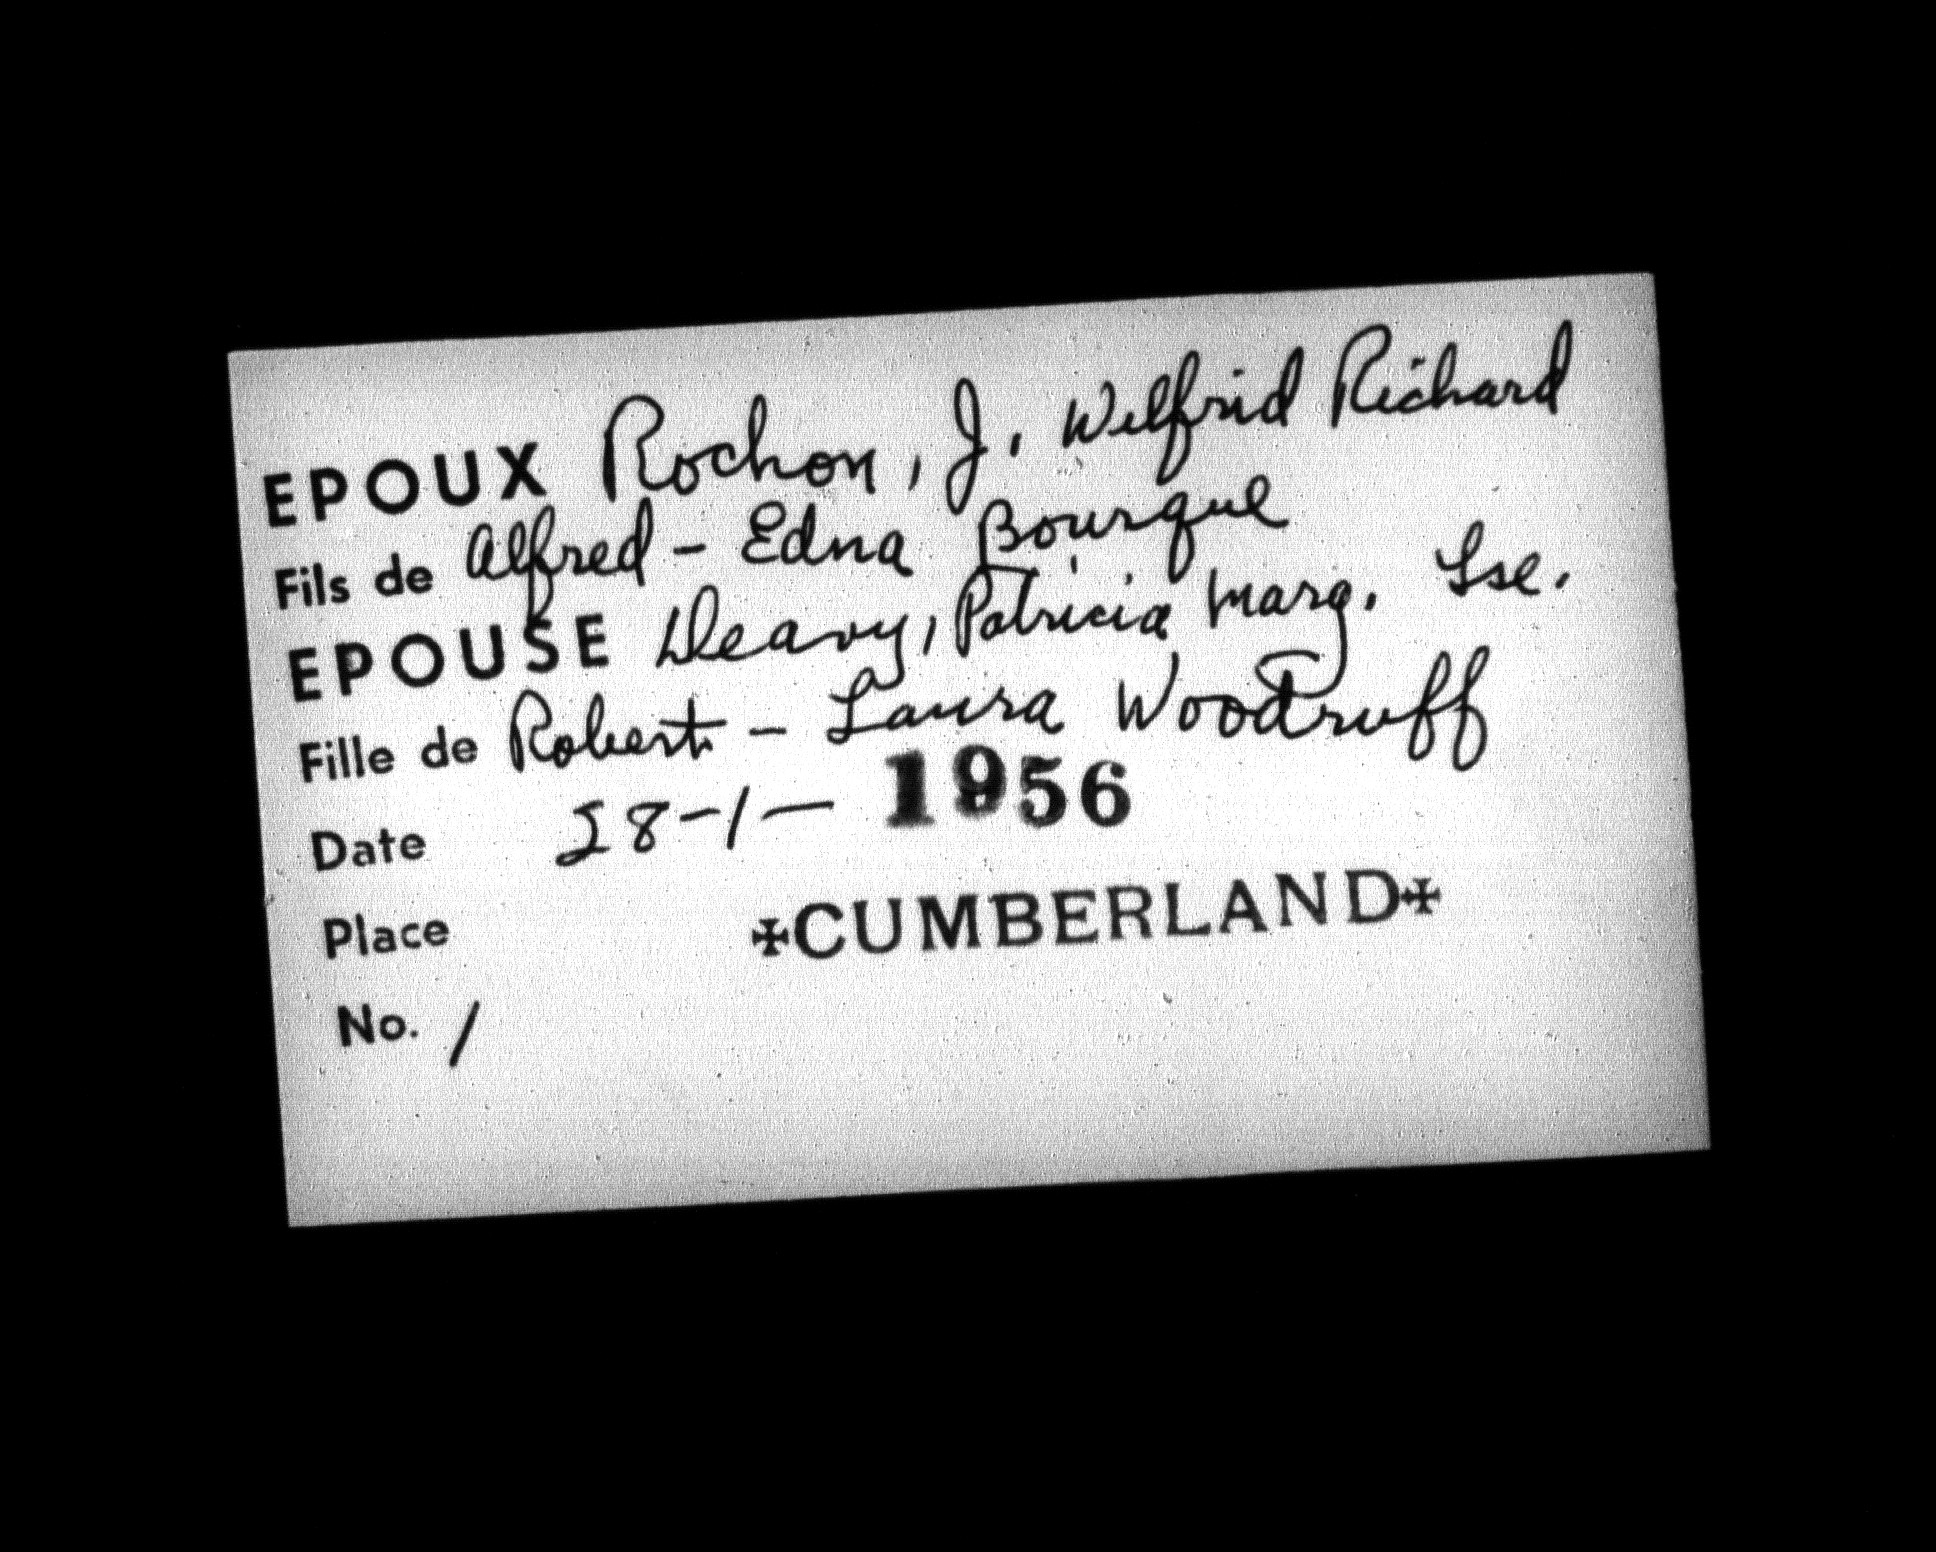 EPOUX Rochon, J. Wilfrid Richard
Fils de Alfred - Edna Bourque
EPOUSE Deavy, Patricia Marg. Lse.
Fille de Robert - Laura Woodruff
Date 28-1- 1956
Place ✠CUMBERLAND✠
No. 1